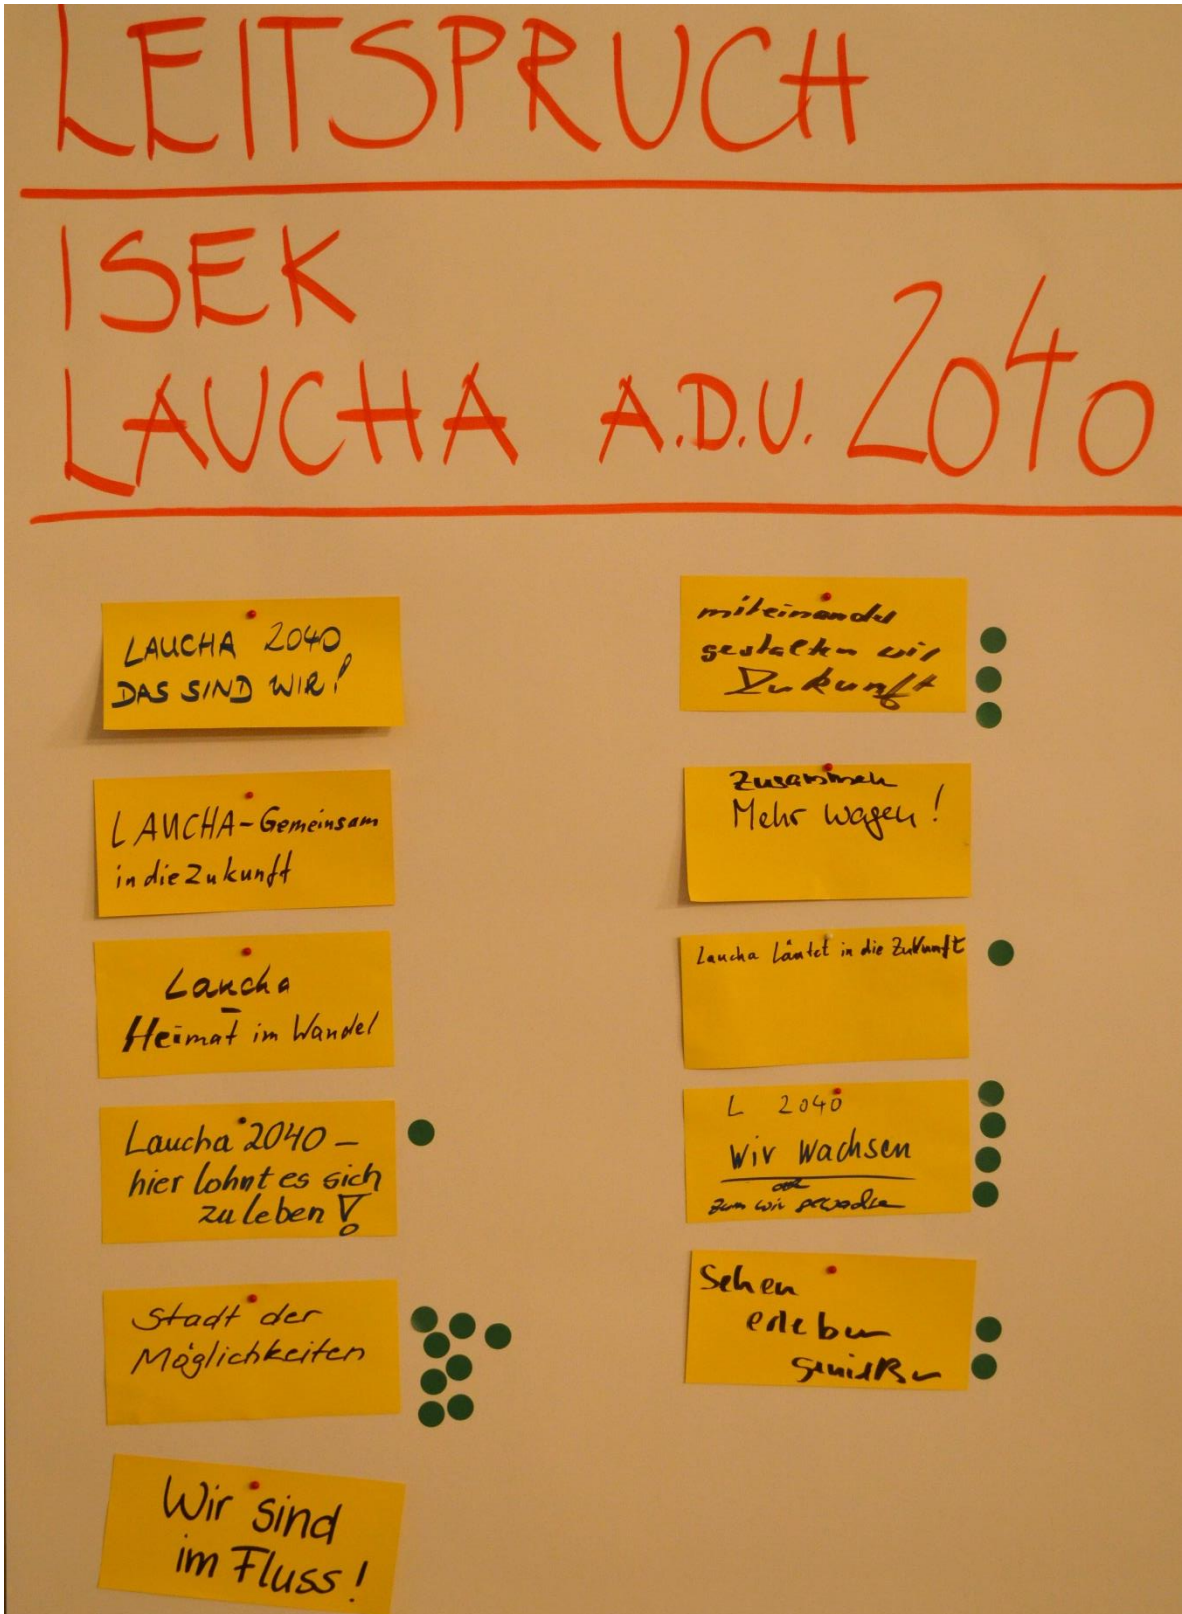 LEITSPRUCH
ISEK
LAUCHA A.D.U. 2040
LAUCHA 2040
DAS SIND WIR!
LAUCHA-Gemeinsam
in die Zukunft
Laucha
–
Heimat im Wandel
Laucha 2040 –
hier lohnt es sich
zu leben!
Stadt der
Möglichkeiten
Wir sind
im Fluss!
miteinander
gestalten wir
Zukunft
Zusammen
Mehr wagen!
Laucha Läutet in die Zukunft
L 2040
Wir wachsen
zum wir
Sehen
erleben
genießen